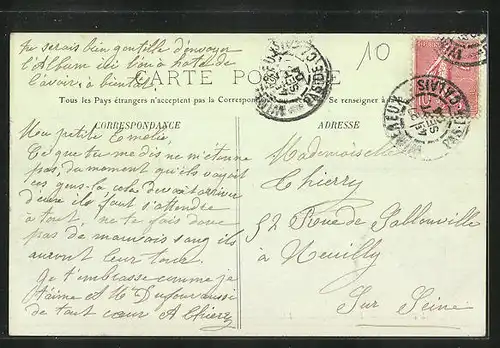 tu serais bien gentille d'envoyer
l'Album ici Lina a hâte de
l'avoir, à bientôt
10
CARTE POSTALE
Tous les Pays étrangers n'acceptent pas la Correspondance Se renseigner à
CORRESPONDANCE
Ma petite Emelie,
Ce que tu me dis ne m'étonne
pas, du moment qu'ils voyait
ces gens-là cela devait arriver
d'eux il faut s'attendre
à tout, ne te fais donc
pas de mauvais sang ils
auront leur tour.
Je t'embrasse comme je
t'aime et Mr Dufour aussi
de tout cœur A Thierry
ADRESSE
Mademoiselle
Thierry
52 Rue de
à Neuilly
Sur Seine
WIMEREUX
PAS-DE-CALAIS